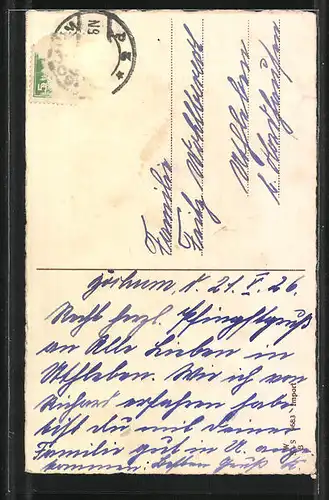 Familie
Fritz
Uthleben
b. Nordhausen
Bochum, d. 21. V. 26.
Recht herzl. Pfingstgruß
an Alle Lieben in
Uthleben. Wie ich von
Richard erfahren habe
bist du mit deiner
Familie gut in U. ange-
kommen. Besten Gruß
Import
5 N